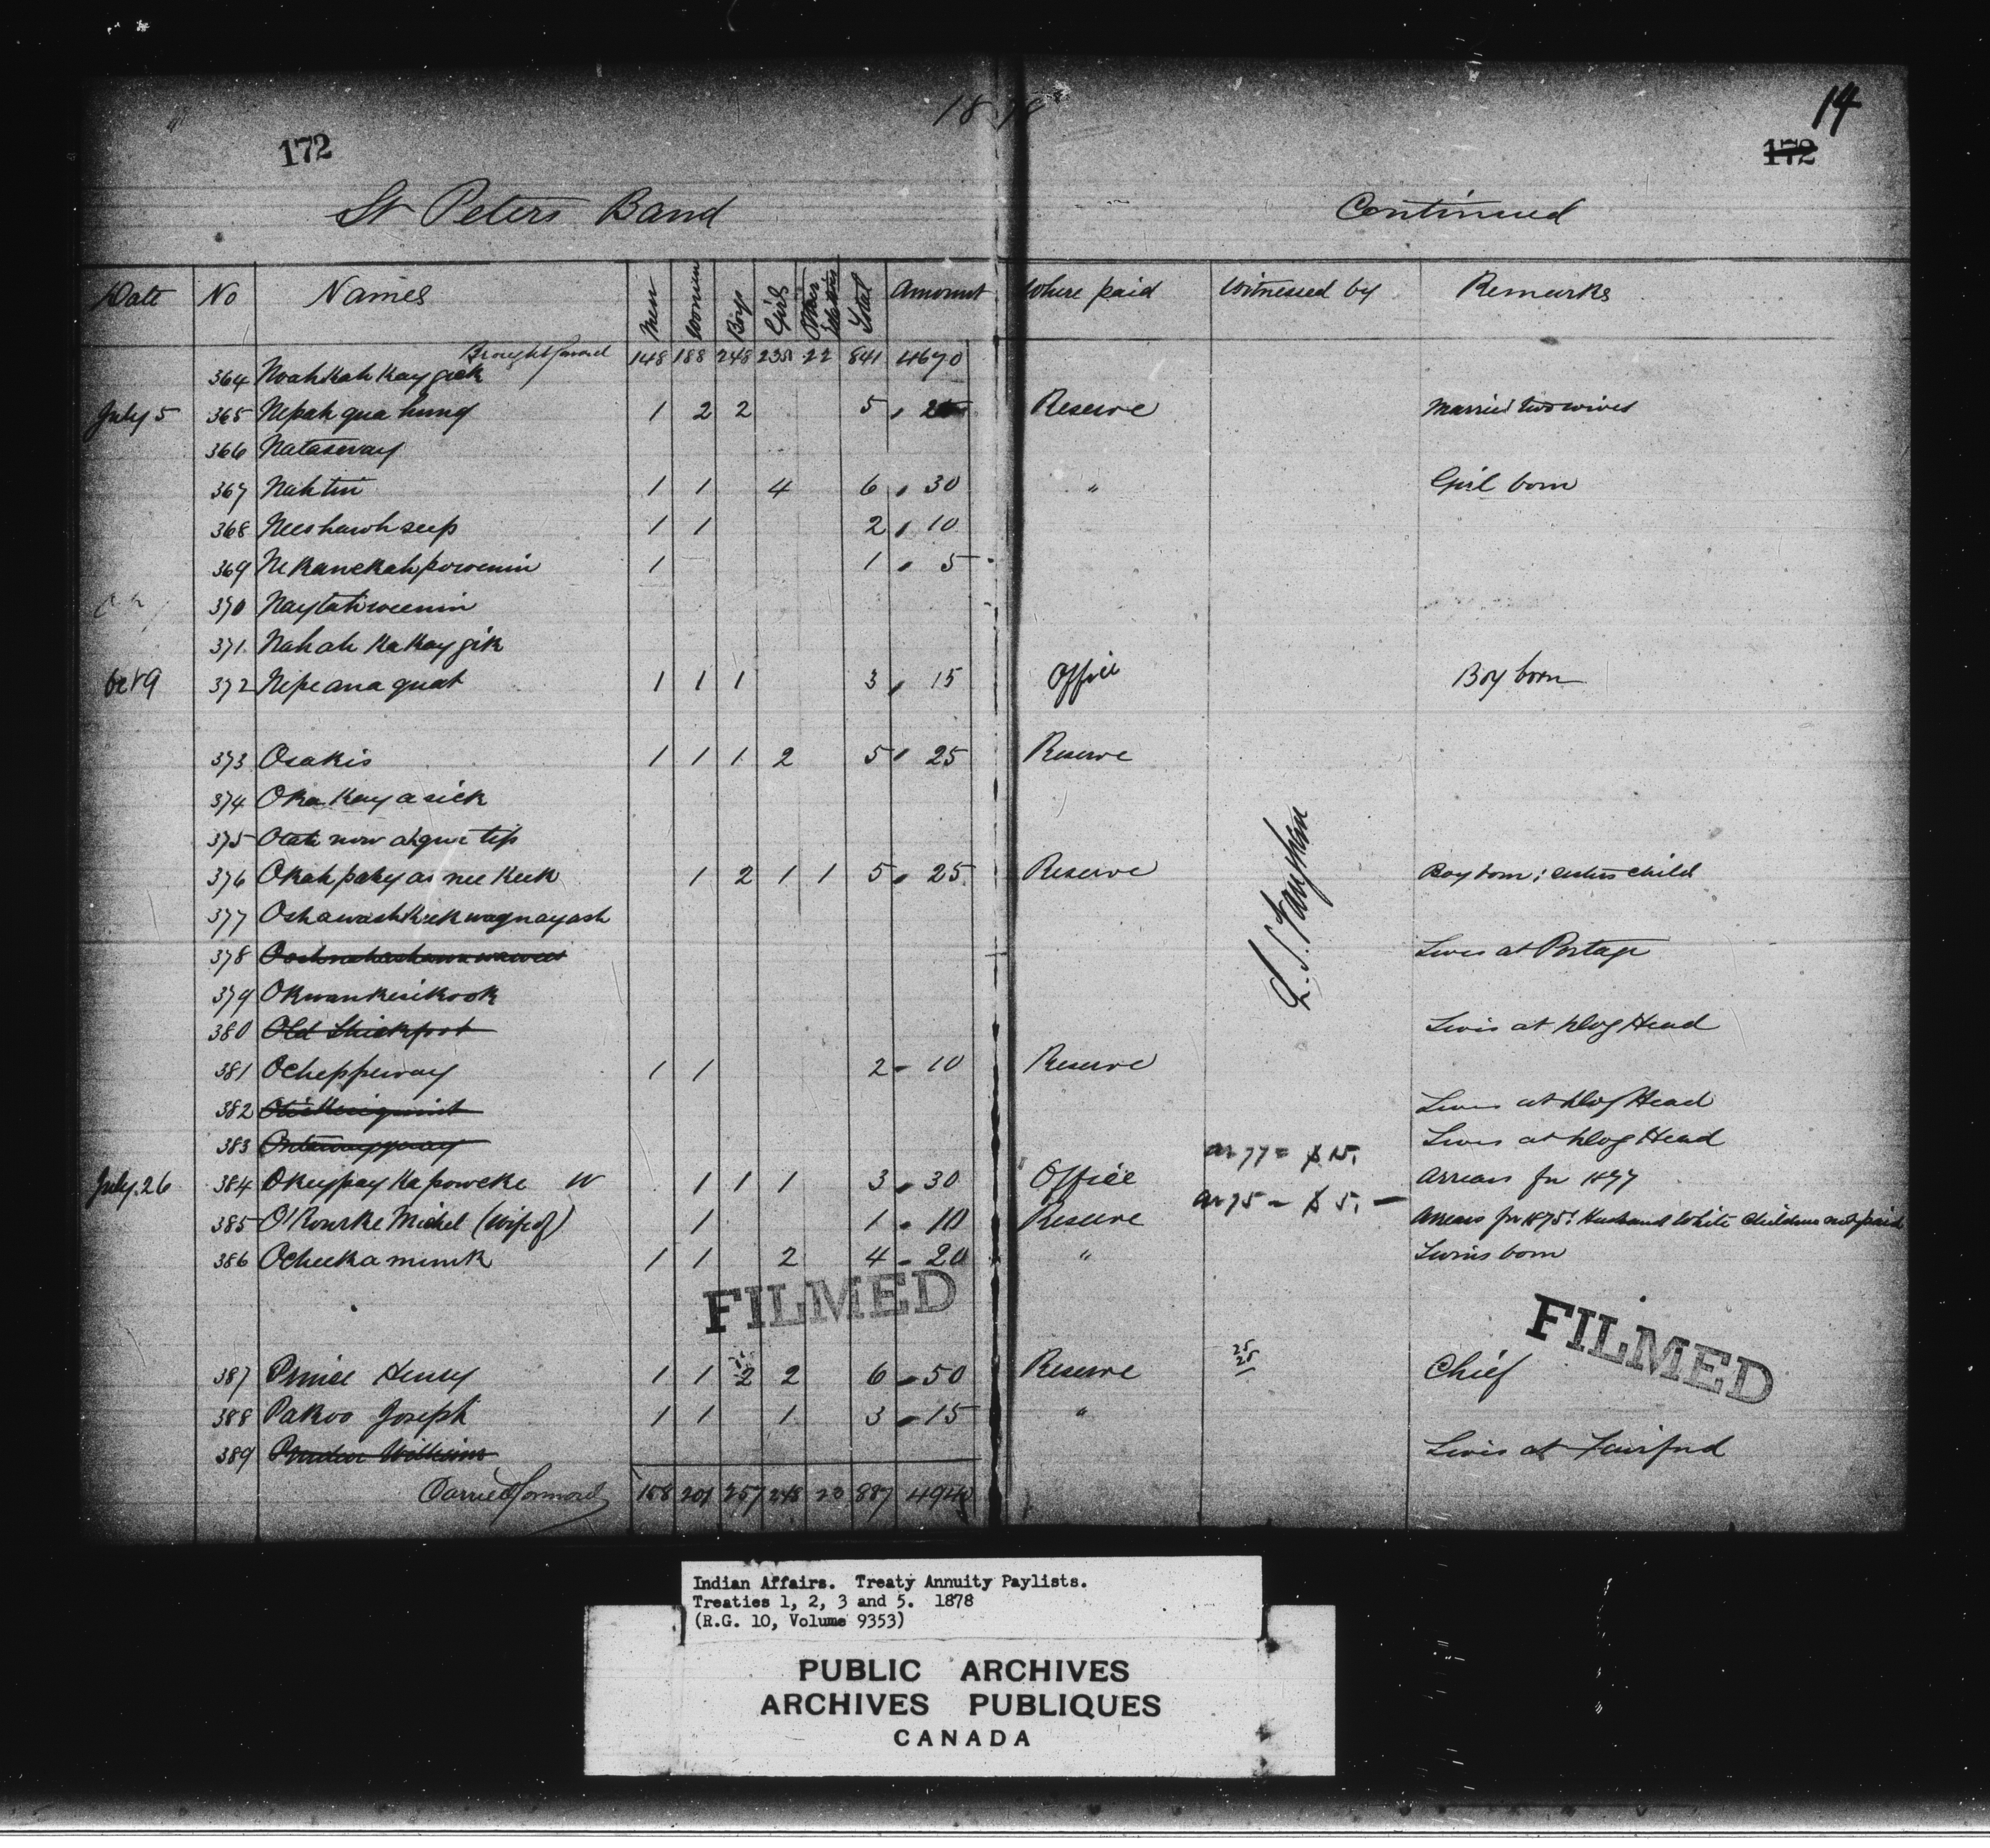 1878
14
172
172
St Peters Band Continued
Date No Names Men Women Boys Girls Other Relatives Total Amount Where paid Witnessed by Remarks
Brought forward 148 188 248 235 22 841 4670
364 Noahkah Kay geek
July 5 365 Nepah qua hung 1 2 2 5 . 25 Reserve Married two wives
366 Nataseway
367 Nahtin 1 1 4 6 . 30 " Girl born
368 Neeshawhseep 1 1 2 . 10
369 Nekanekahpowenin 1 1 . 5
370 Naytahweenin
371 Nahah Ka Kay gik
Oct 9 372 Nepeanaquat 1 1 1 3 . 15 Office Boy born
373 Osakis 1 1 1 2 5 . 25 Reserve
374 Oka Kay a sick
375 Otah now ahque tip
376 Okah pahy as nee Keek 1 2 1 1 5 . 25 Reserve Boy born; sisters child
377 Oshawashkeekwaynayash
378 Lives at Portage
379 Okwankesikook
380 Old Lives at Dog Head
381 Ocheppeway 1 1 2 - 10 Reserve
382 Lives at Dog Head
383 Lives at Dog Head
ar 77 = $15.
July 26 384 Okeypay Ka poweke W 1 1 1 3 . 30 Office Arrears for 1877
385 O'Rourke Michel (wife of) 1 1 . 10 Reserve ar 75 - $5. - Arrears for 1875: Husband White Children not paid
386 Ocheekamink 1 1 2 4 - 20 " Twins born
FILMED
FILMED
387 Prince Henry 1 1 2 2 6 . 50 Reserve 25 25 Chief
388 Pakoo Joseph 1 1 1 3 . 15 "
389 William Lives at Fairford
Carried forward 158 201 257 248 23 887 4940
Indian Affairs. Treaty Annuity Paylists.
Treaties 1, 2, 3 and 5. 1878
(R.G. 10, Volume 9353)
PUBLIC ARCHIVES
ARCHIVES PUBLIQUES
CANADA